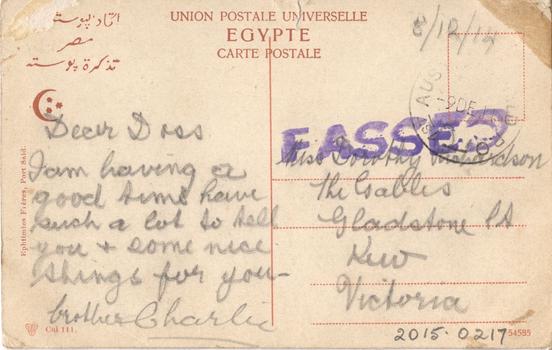 اتحاد پوسته
مصر
تذكرة پوسته
UNION POSTALE UNIVERSELLE
EGYPTE
CARTE POSTALE
8/12/14
AUS
PASSED
Dear Doss
I am having a
good time have
such a lot to tell
you + some nice
things for you-
brother Charlie
Miss Dorothy Richardson
The Gables
Gladstone St
Kew
Victoria
Ephtimios Frères, Port Said.
Cal 111.
2015.0217
54595